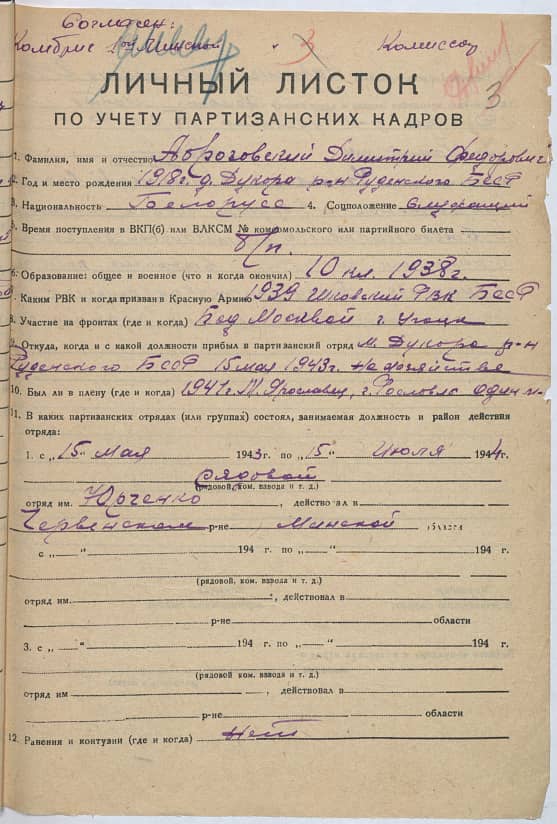 Согласен:
Комбриг 1ой Минской 3 Комиссар
3
ЛИЧНЫЙ ЛИСТОК
ПО УЧЕТУ ПАРТИЗАНСКИХ КАДРОВ
1. Фамилия, имя и отчество Аброговский Димитрий Федорович
2. Год и место рождения 1918г. д. Дукора р-н Руденского БССР
3. Национальность Белорусс 4. Соцположение служащий
5. Время поступления в ВКП(б) или ВЛКСМ № комсомольского или партийного билета
б/п.
6. Образование: общее и военное (что и когда окончил) 10 кл. 1938г.
7. Каким РВК и когда призван в Красную Армию 1939 РВК БССР
8. Участие на фронтах (где и когда) Под Москвой г.
9. Откуда, когда и с какой должности прибыл в партизанский отряд м. Дукора р-н
Руденского БССР 15 мая 1943г. На хозяйстве
10. Был ли в плену (где и когда) 1941г. М Ярославец, г. Рославль один м-ц
11. В каких партизанских отрядах (или группах) состоял, занимаемая должность и район действия
отряда:
1. с „15" мая 1943г. по „15" июля 1944г.
рядовой
(рядовой, ком. взвода и т. д.)
отряд им. Юрченко, действовал в
Червенском р-не Минской области
с „ " 194 г. по „ " 194 г.
(рядовой, ком. взвода и т. д.)
отряд им. , действовал в
р-не области
3. с „ " 194 г. по „ " 194 г.
(рядовой, ком. взвода и т. д.)
отряд им , действовал в
р-не области
12. Ранения и контузии (где и когда) нет